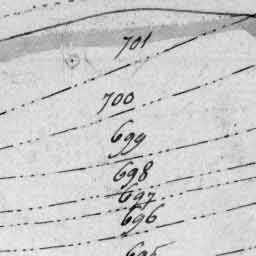 701
700
699
698
697
696
695